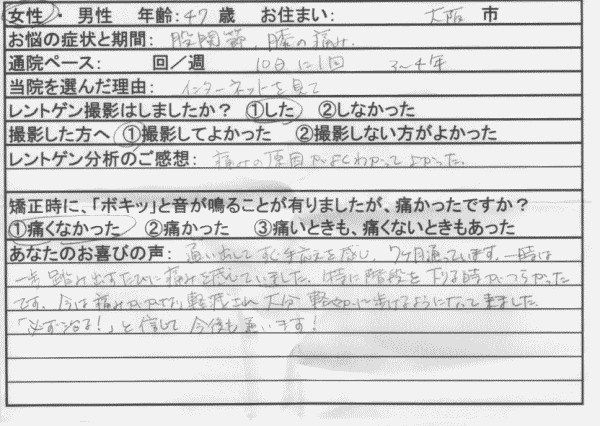 女性・男性 年齢:47歳 お住まい: 大阪市
お悩の症状と期間: 股関節、膝の痛み。
通院ペース: 回/週 10日に1回 3〜4年
当院を選んだ理由: インターネットを見て
レントゲン撮影はしましたか? ①した ②しなかった
撮影した方へ ①撮影してよかった ②撮影しない方がよかった
レントゲン分析のご感想: 痛みの原因がよくわかってよかった。
矯正時に、「ボキッ」と音が鳴ることが有りましたが、痛かったですか?
①痛くなかった ②痛かった ③痛いときも、痛くないときもあった
あなたのお喜びの声: 通い出してすぐ手応えを感じ、7ヶ月通っています。一時は
一歩踏み出すたびに痛みを感じていました。特に階段を下りる時がつらかった
です。今は痛みがかなり軽減され大分軽やかに歩けるようになって来ました。
「必ず治る!」と信じて今後も通います!